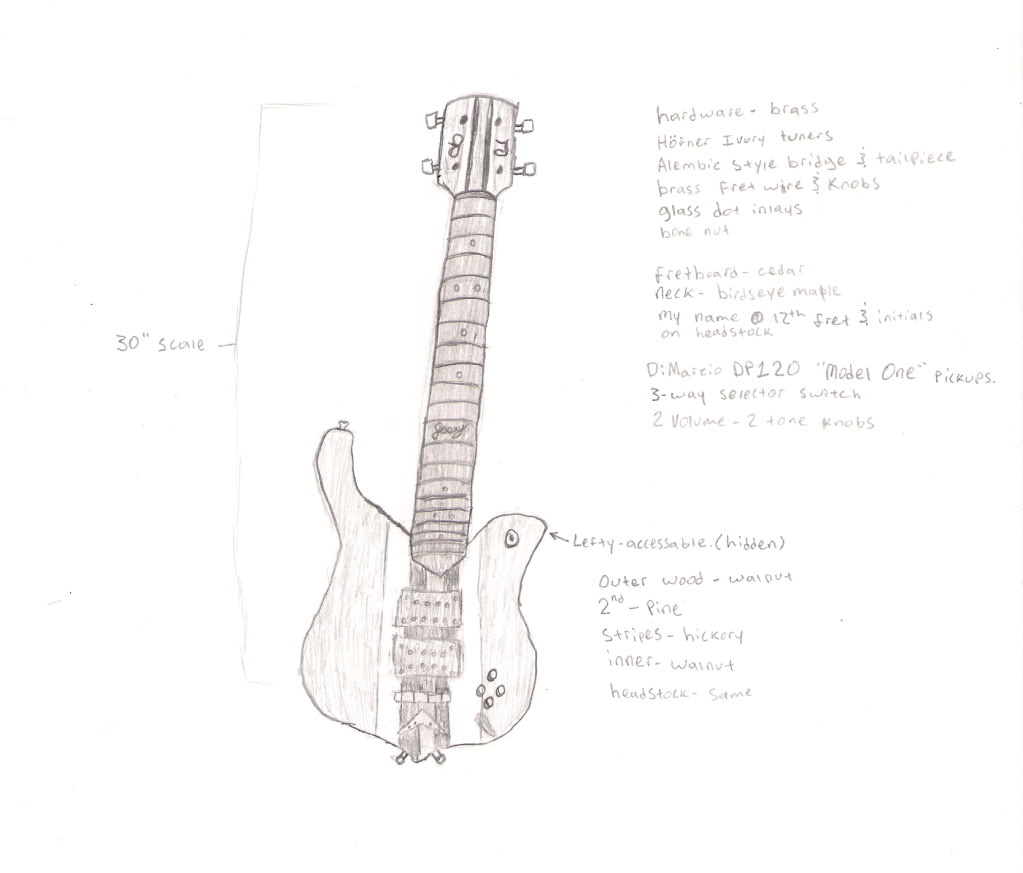 hardware - brass
Höfner Ivory tuners
Alembic style bridge & tailpiece
brass fret wire & knobs
glass dot inlays
bone nut
fretboard - cedar
neck - birdseye maple
my name @ 12th fret & initials
on headstock
DiMarzio DP120 "Model One" pickups.
3-way selector switch
2 Volume - 2 tone knobs
30" scale
Joey
Lefty-accessable. (hidden)
Outer wood - walnut
2nd - Pine
stripes - hickory
inner - walnut
headstock - same